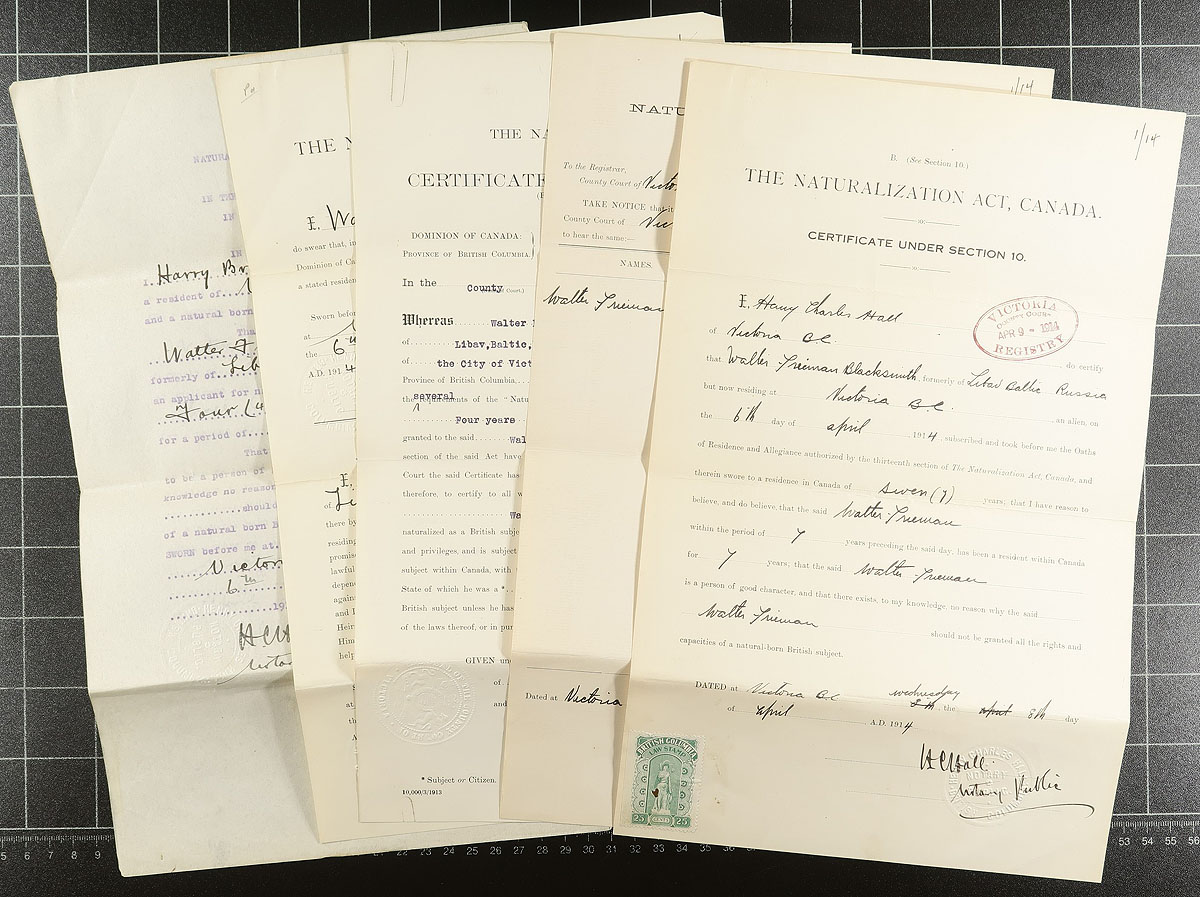 NATURA
IN THE
IN
IN
I, Harry Br
a resident of
and a natural born
Tha
Walter F
formerly of Lib
an applicant for n
Four (4
for a period of
That
to be a person of
knowledge no reason
should
of a natural born B
SWORN before me at
Victor
6th
19
HCH
Notar
THE N
I, Wa
do swear that, in
Dominion of Ca
a stated residen
Sworn before
at
the 6th
A.D. 191 4
I,
of Li
there by
residing
promise
lawful
depend
against
and I
Heirs
Him
help
THE NA
CERTIFICATE
DOMINION OF CANADA:
PROVINCE OF BRITISH COLUMBIA.
In the County (Court.)
Whereas Walter
of Libav, Baltic,
of the City of Vict
Province of British Columbia
several
the requirements of the "Natu
Four years
granted to the said Wal
section of the said Act have
Court the said Certificate has
therefore, to certify to all w
Wa
naturalized as a British subject
and privileges, and is subject
subject within Canada, with
State of which he was a *
British subject unless he has
of the laws thereof, or in pur
GIVEN und
of
and
* Subject or Citizen.
10,000/3/1913
NATU
To the Registrar,
County Court of Victo
TAKE NOTICE that it
County Court of Vic
to hear the same:—
NAMES.
Walter Frieman
Dated at Victoria
1/14
1/14
B. (See Section 10.)
THE NATURALIZATION ACT, CANADA.
CERTIFICATE UNDER SECTION 10.
VICTORIA
COUNTY COURT
APR 9 - 1914
REGISTRY
I, Harry Charles Hall
of Victoria B.C. do certify
that Walter Frieman Blacksmith, formerly of Libav Baltic Russia
but now residing at Victoria B.C. an alien, on
the 6th day of April 1914, subscribed and took before me the Oaths
of Residence and Allegiance authorized by the thirteenth section of The Naturalization Act, Canada, and
therein swore to a residence in Canada of seven (7) years; that I have reason to
believe, and do believe, that the said Walter Frieman
within the period of 7 years preceding the said day, has been a resident within Canada
for 7 years; that the said Walter Frieman
is a person of good character, and that there exists, to my knowledge, no reason why the said
Walter Frieman should not be granted all the rights and
capacities of a natural-born British subject.
DATED at Victoria B.C. wednesday
8th, the April 8th day
of April A.D. 1914
HCHall
Notary Public
BRITISH COLUMBIA
LAW STAMP
25 CENTS 25
5 6 7 8 9
21 22 23 24 25 26 27 28 29 30 31 32 33 34 35 36
53 54 55 56